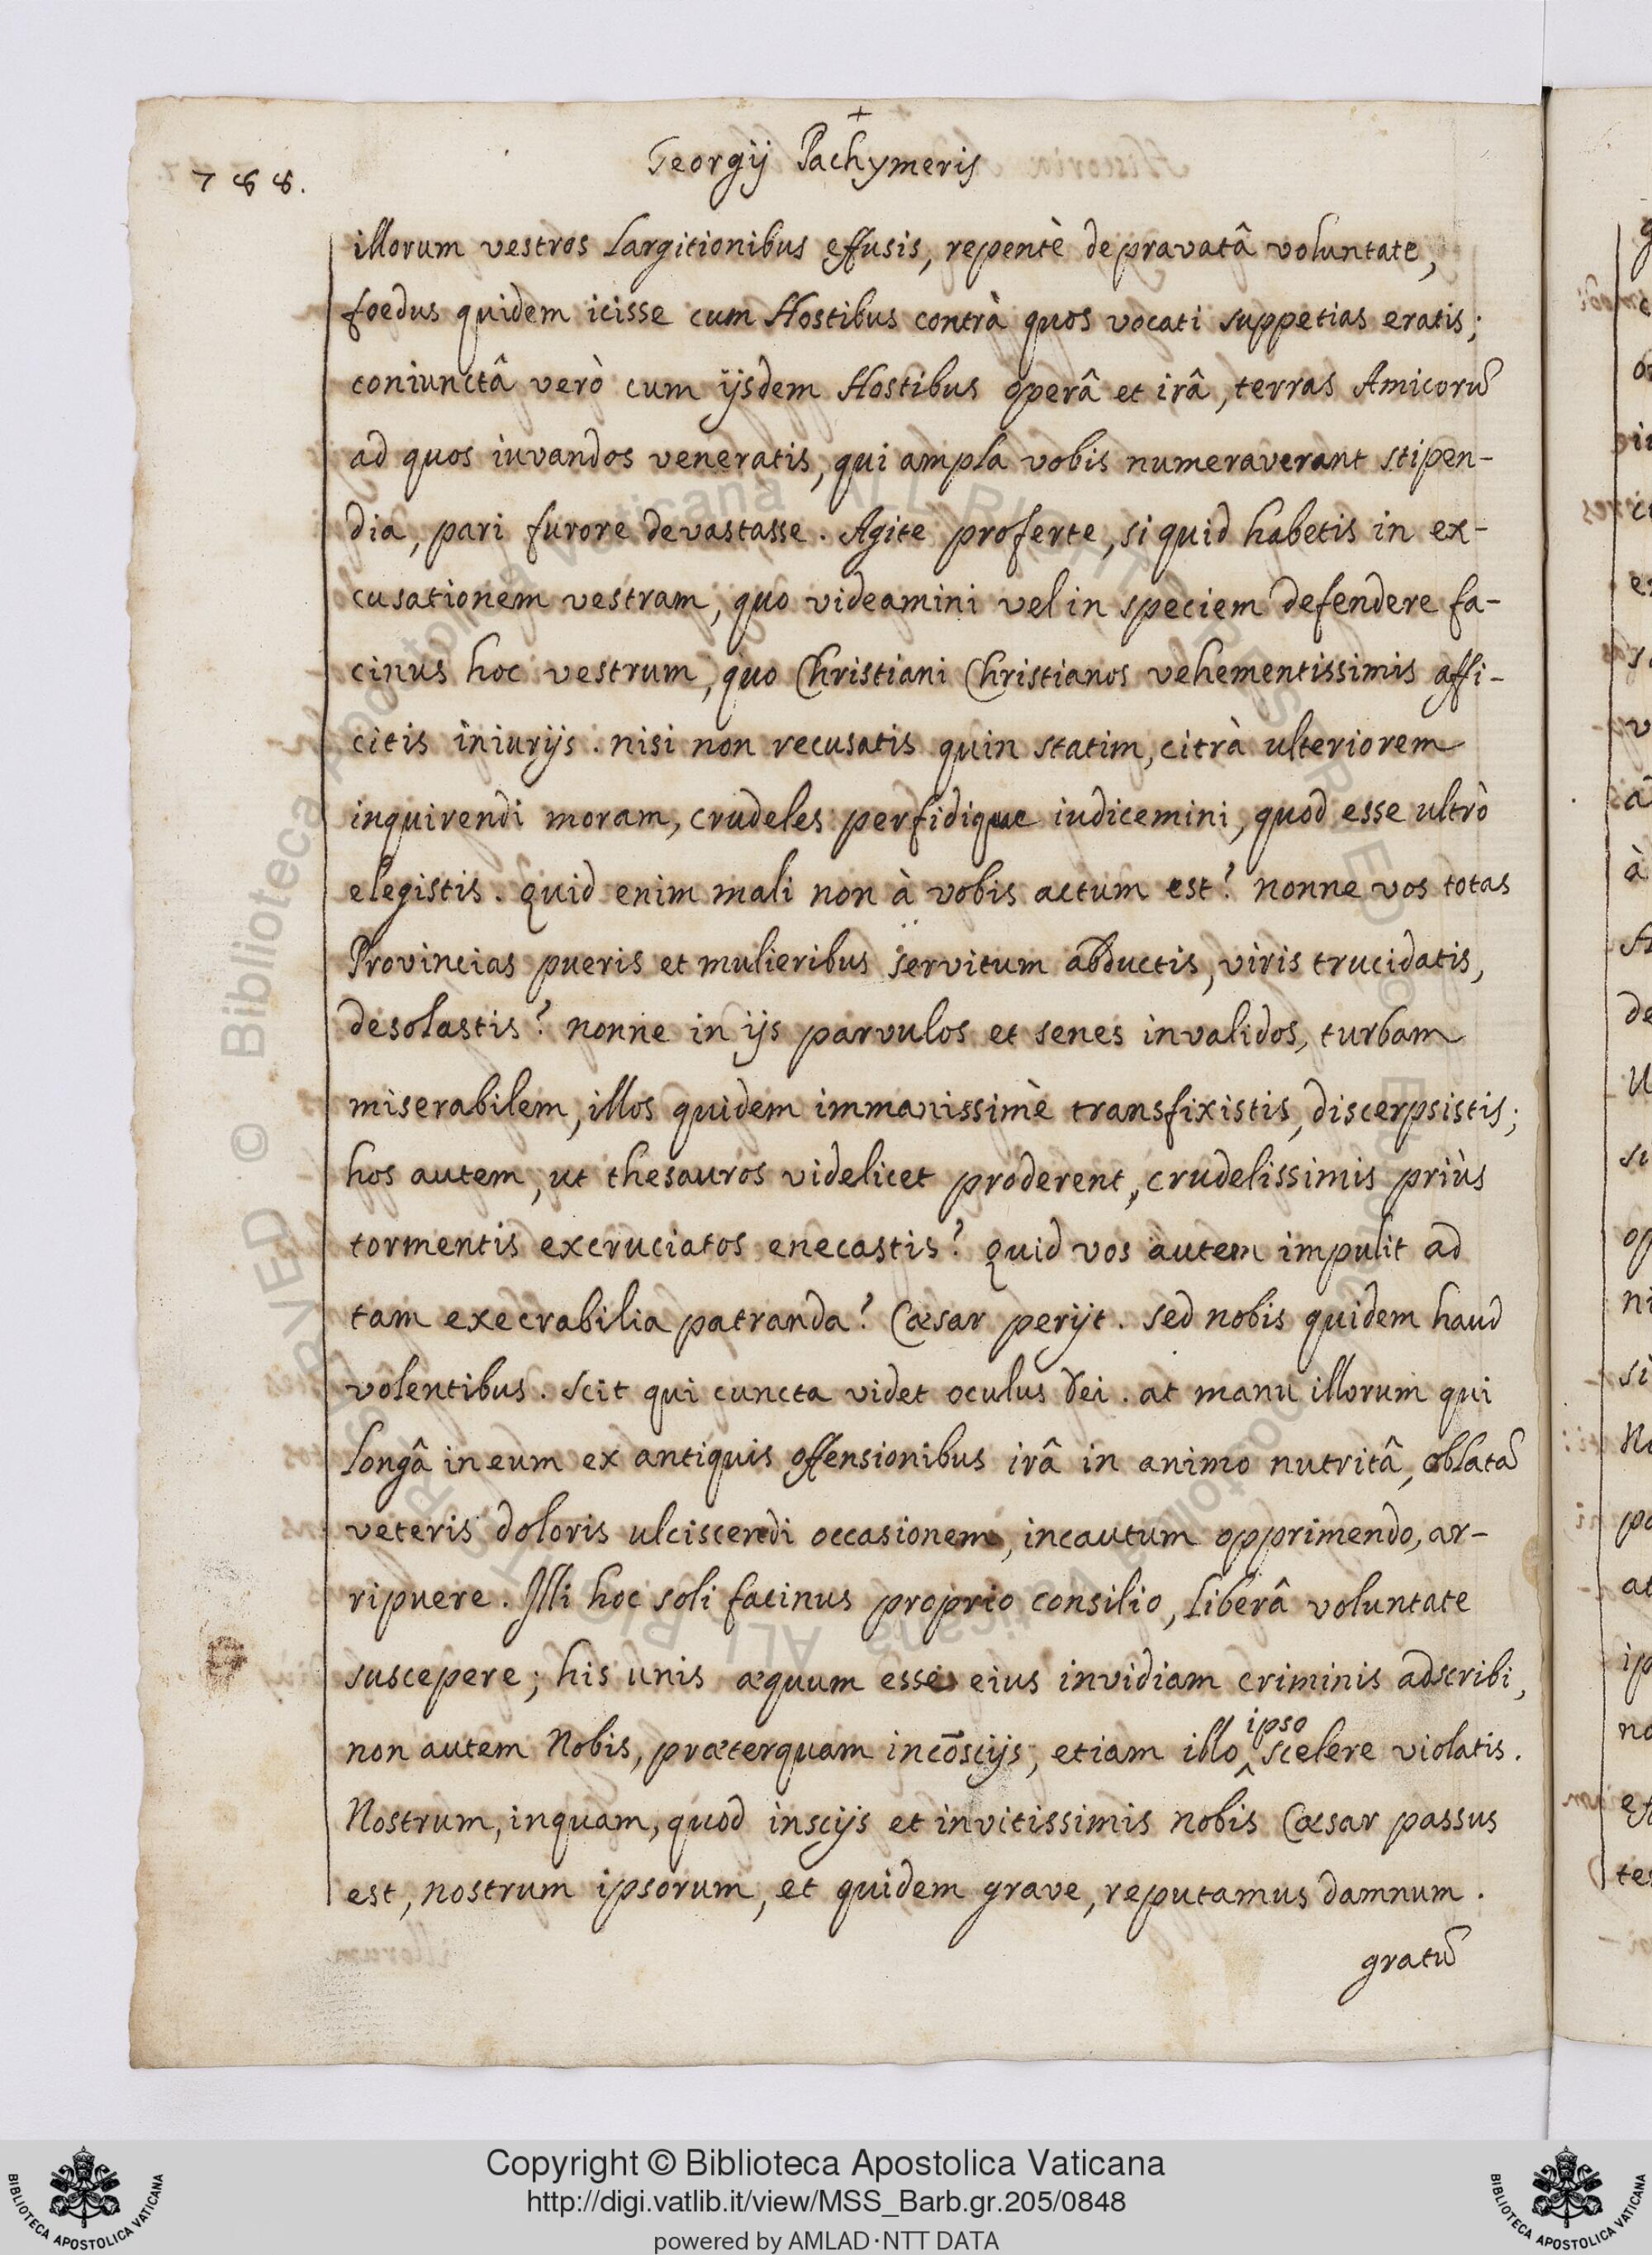 +
788. Georgij Pachymeris
illorum vestros largitionibus effusis, repentè depravatâ voluntate,
foedus quidem icisse cum Hostibus contrà quos vocati suppetias eratis;
coniunctâ verò cum ijsdem Hostibus operâ et irâ, terras Amicorũ
ad quos iuvandos veneratis, qui ampla vobis numeraverant stipen-
dia, pari furore devastasse. Agite proferte, si quid habetis in ex-
cusationem vestram, quo videamini vel in speciem defendere fa-
cinus hoc vestrum, quo Christiani Christianos vehementissimis affi-
citis iniurijs. nisi non recusatis quin statim, citrà ulteriorem
inquirendi moram, crudeles perfidique iudicemini, quod esse ultrò
elegistis. Quid enim mali non à vobis actum est? nonne vos totas
Provincias pueris et mulieribus servitum abductis, viris trucidatis,
desolastis? nonne in ijs parvulos et senes invalidos, turbam
miserabilem, illos quidem immanissimè transfixistis, discerpsistis;
hos autem, ut thesauros videlicet proderent, crudelissimis priùs
tormentis excruciatos enecastis? Quid vos autem impulit ad
tam execrabilia patranda? Cæsar perijt. sed nobis quidem haud
volentibus. scit qui cuncta videt oculus Dei. at manu illorum qui
longâ in eum ex antiquis offensionibus irâ in animo nutritâ, oblatã
veteris doloris ulciscendi occasionem, incautum opprimendo, ar-
ripuere. Illi hoc soli facinus proprio consilio, liberâ voluntate
suscepere; his unis æquum esse eius invidiam criminis adscribi,
non autem Nobis, præterquam incõscijs, etiam illo ^ipso scelere violatis.
Nostrum, inquam, quod inscijs et invitissimis nobis Cæsar passus
est, nostrum ipsorum, et quidem grave, reputamus damnum.
gratũ
Copyright © Biblioteca Apostolica Vaticana
http://digi.vatlib.it/view/MSS_Barb.gr.205/0848
powered by AMLAD·NTT DATA
BIBLIOTECA APOSTOLICA VATICANA
BIBLIOTECA APOSTOLICA VATICANA